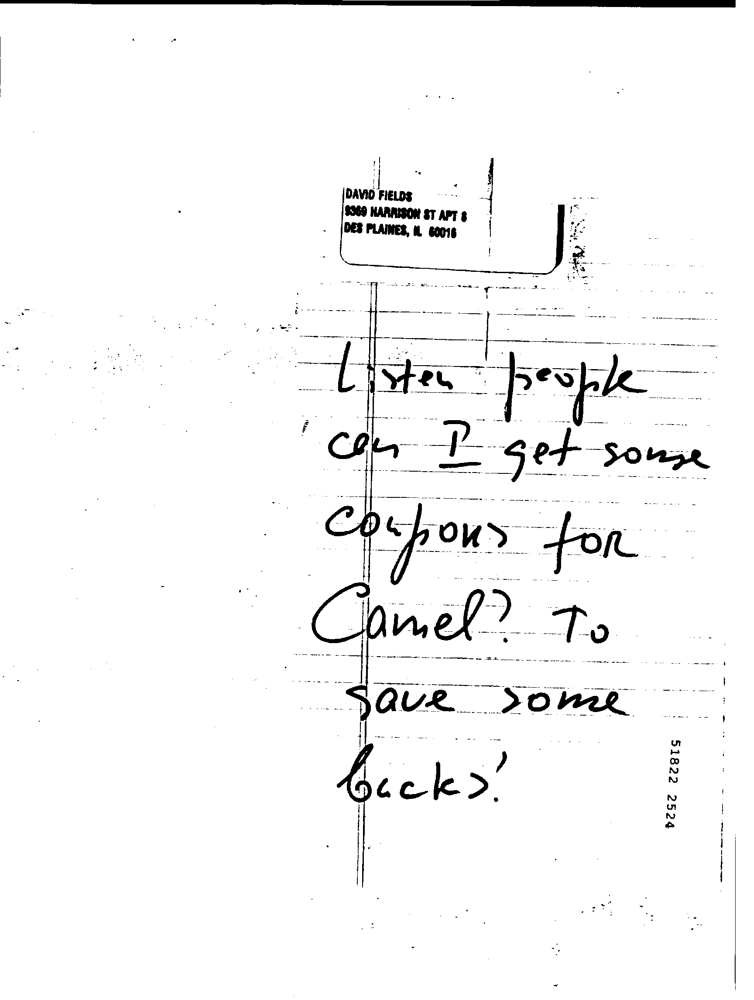 DAVID FIELDS
9369 HARRISON ST APT 8
DES PLAINES, IL 60016
Listen people
can I get some
coupons for
Camel? To
save some
bucks!
51822 2524